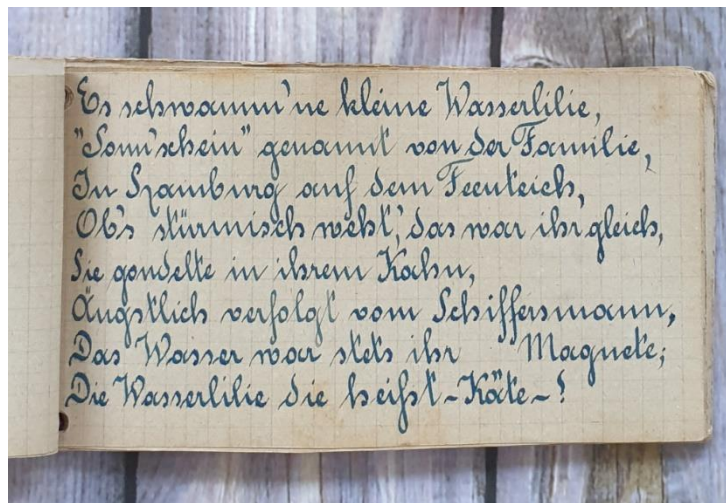 Es schwamm 'ne kleine Wasserlilie,
"Sonn'schein" genannt von der Familie,
In Hamburg auf dem Feenteich,
Ob's stürmisch weht', das war ihr gleich,
Sie gondelte in ihrem Kahn,
Ängstlich verfolgt vom Schiffersmann,
Das Wasser war stets ihr Magnete;
Die Wasserlilie die heißt ~ Käte ~!